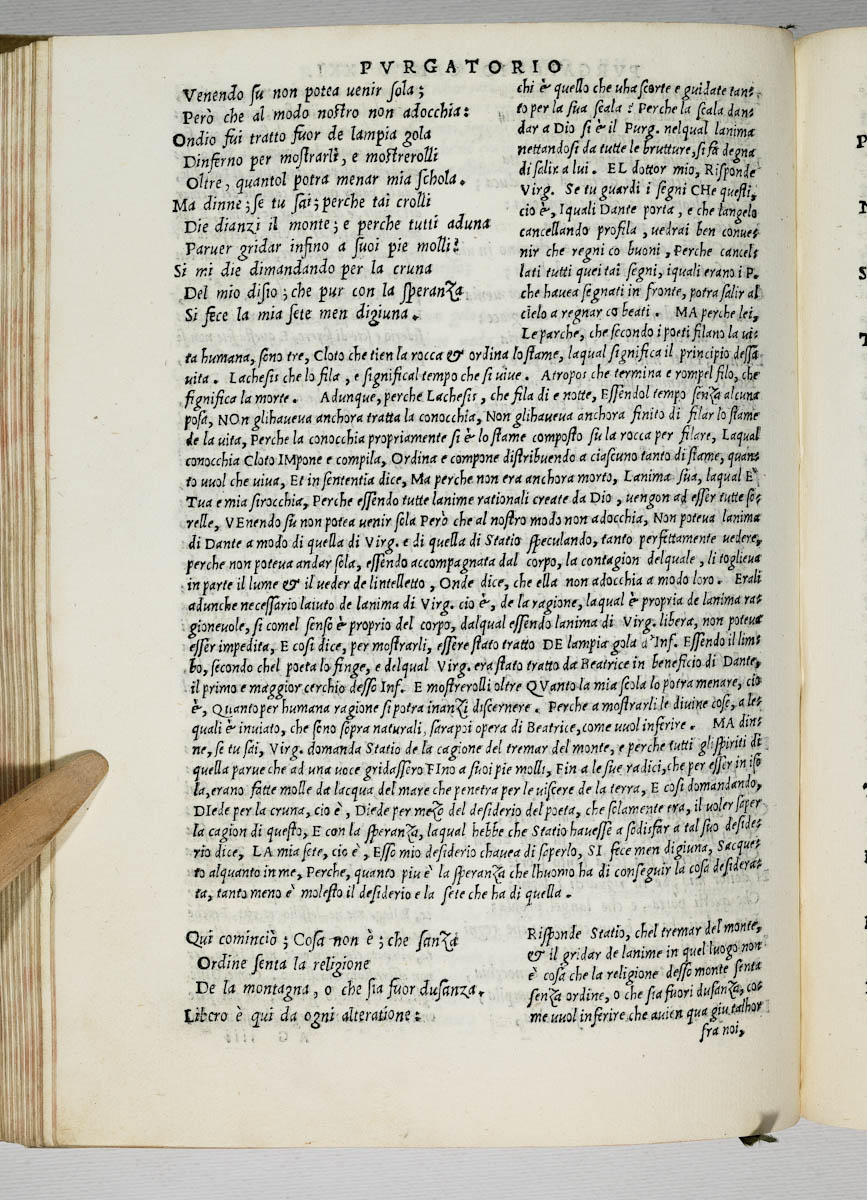 PVRGATORIO
Venendo su non potea uenir sola;
Però che al modo nostro non adocchia:
Ondio fui tratto fuor de lampia gola
Dinferno per mostrarli, e mostrerolli
Oltre, quantol potra menar mia schola.
Ma dinne; se tu sai; perche tai crolli
Die dianzi il monte; e perche tutti aduna
Paruer gridar infino a suoi pie molli?
Si mi die dimandando per la cruna
Del mio disio; che pur con la speranza
Si fece la mia sete men digiuna.
chi è quello che uha scorte e guidate tan-
to per la sua scala? Perche la scala dan-
dar a Dio si è il Purg. nelqual lanima
nettandosi da tutte le brutture, si fa degna
di salir a lui. EL dottor mio, Risponde
Virg. Se tu guardi i segni CHe questi,
cio è, Iquali Dante porta, e che langelo
cancellando profila, uedrai ben conue-
nir che regni co buoni, Perche cancel-
lati tutti quei tai segni, iquali erano i P.
che hauea segnati in fronte, potra salir al
cielo a regnar co beati. MA perche lei,
Le parche, che secondo i poeti filano la ui-
ta humana, sono tre, Cloto che tien la rocca & ordina lo stame, laqual significa il principio dessa
uita. Lachesis che lo fila, e significal tempo che si uiue. Atropos che termina e rompel filo, che
significa la morte. Adunque, perche Lachesis, che fila di e notte, Essendol tempo senza alcuna
posa, NOn glihaueua anchora tratta la conocchia, Non glihaueua anchora finito di filar lo stame
de la uita, Perche la conocchia propriamente si è lo stame composto su la rocca per filare, Laqual
conocchia Cloto IMpone e compila, Ordina e compone distribuendo a ciascuno tanto di stame, quan-
to uuol che uiua, Et in sententia dice, Ma perche non era anchora morto, Lanima sua, laqual E
Tua e mia sirocchia, Perche essendo tutte lanime rationali create da Dio, uengon ad esser tutte so-
relle, VEnendo su non potea uenir sola Però che al nostro modo non adocchia, Non poteua lanima
di Dante a modo di quella di Virg. e di quella di Statio speculando, tanto perfettamente uedere,
perche non poteua andar sola, essendo accompagnata dal corpo, la contagion delquale, li toglieua
in parte il lume & il ueder de lintelletto, Onde dice, che ella non adocchia a modo loro. Erali
adunche necessario laiuto de lanima di Virg. cio è, de la ragione, laqual è propria de lanima ra-
gioneuole, si comel senso è proprio del corpo, dalqual essendo lanima di Virg. libera, non poteua
esser impedita, E cosi dice, per mostrarli, essere stato tratto DE lampia gola d'Inf. Essendo il lim-
bo, secondo chel poeta lo finge, e delqual Virg. era stato tratto da Beatrice in beneficio di Dante,
il primo e maggior cerchio desso Inf. E mostrerolli oltre QVanto la mia scola lo potra menare, cio
è, Quanto per humana ragione si potra inanzi discernere. Perche a mostrarli le diuine cose, a le-
quali è inuiato, che sono sopra naturali, sara poi opera di Beatrice, come uuol inferire. MA din-
ne, se tu sai, Virg. domanda Statio de la cagione del tremar del monte, e perche tutti gli spiriti di
quella parue che ad una uoce gridassero FIno a suoi pie molli, Fin a le sue radici, che per esser in iso
la, erano fatte molle da lacqua del mare che penetra per le uiscere de la terra, E cosi domandando,
DIede per la cruna, cio è, Diede per mezo del desiderio del poeta, che solamente era, il uoler saper
la cagion di questo, E con la speranza, laqual hebbe che Statio hauesse a sodisfar a tal suo deside-
rio dice, LA mia sete, cio è, Esso mio desiderio chauea di saperlo, SI fece men digiuna, Sacque-
to alquanto in me, Perche, quanto piu è la speranza che lhuomo ha di conseguir la cosa desidera-
ta, tanto meno è molesto il desiderio e la sete che ha di quella.
Qui cominciò; Cosa non è; che sanza
Ordine senta la religione
De la montagna, o che sia fuor dusanza.
Libero è qui da ogni alteratione:
Risponde Statio, chel tremar del monte,
& il gridar de lanime in quel luogo non
è cosa che la religione desso monte senta
senza ordine, o che sia fuori dusanza, co-
me uuol inferire che auien qua giu talhor
fra noi,